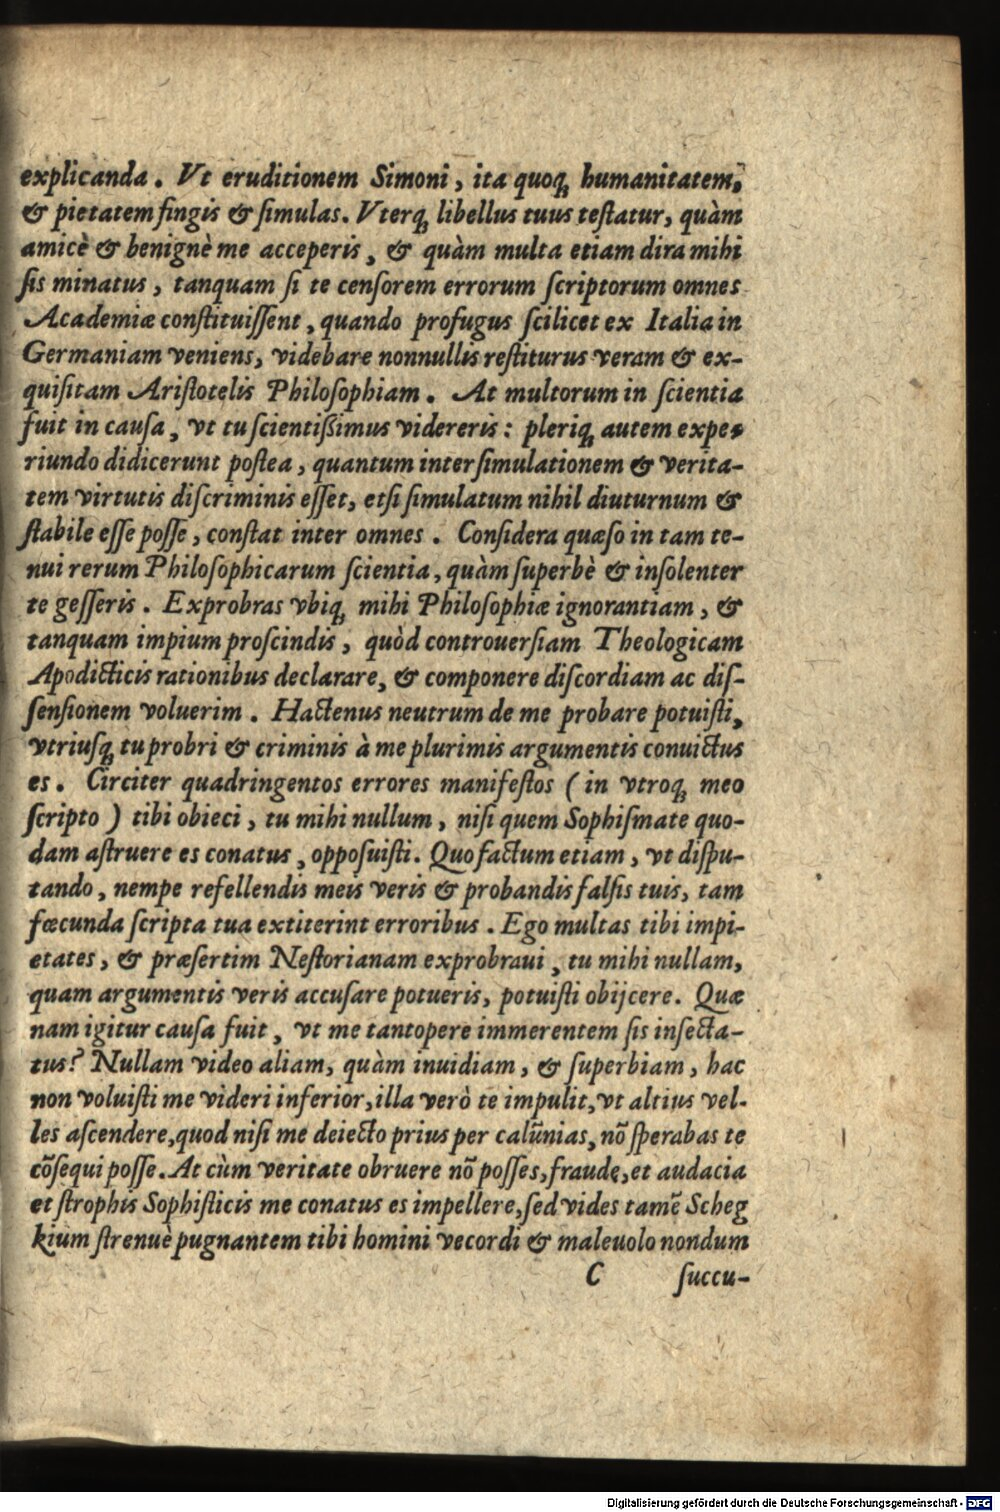 explicanda . Vt eruditionem Simoni, ita quoq́ꝫ humanitatem,
& pietatem fingis & ſimulas. Vterqꝫ libellus tuus teſtatur, quàm
amicè & benignè me acceperis, & quàm multa etiam dira mihi
ſis minatus, tanquam ſi te cenſorem errorum ſcriptorum omnes
Academiæ conſtituiſſent, quando profugus ſcilicet ex Italia in
Germaniam veniens, videbare nonnullis reſtiturus veram & ex-
quiſitam Ariſtotelis Philoſophiam. At multorum in ſcientia
fuit in cauſa, vt tu ſcientiſſimus videreris: pleriqꝫ autem expe-
riundo didicerunt poſtea, quantum inter ſimulationem & verita-
tem virtutis diſcriminis eſſet, etſi ſimulatum nihil diuturnum &
ſtabile eſſe poſſe, conſtat inter omnes. Conſidera quæſo in tam te-
nui rerum Philoſophicarum ſcientia, quàm ſuperbè & inſolenter
te geſſeris. Exprobras vbiqꝫ mihi Philoſophiæ ignorantiam, &
tanquam impium proſcindis, quòd controuerſiam Theologicam
Apodicticis rationibus declarare, & componere diſcordiam ac diſ-
ſenſionem voluerim. Hactenus neutrum de me probare potuiſti,
vtriuſqꝫ tu probri & criminis à me plurimis argumentis conuictus
es. Circiter quadringentos errores manifeſtos (in vtroqꝫ meo
ſcripto) tibi obieci, tu mihi nullum, niſi quem Sophiſmate quo-
dam aſtruere es conatus, oppoſuiſti. Quo factum etiam, vt diſpu-
tando, nempe refellendis meis veris & probandis falſis tuis, tam
fœcunda ſcripta tua extiterint erroribus. Ego multas tibi impi-
etates, & præſertim Neſtorianam exprobraui, tu mihi nullam,
quam argumentis veris accuſare potueris, potuiſti obijcere. Quæ
nam igitur cauſa fuit, vt me tantopere immerentem ſis inſecta-
tus? Nullam video aliam, quàm inuidiam, & ſuperbiam, hac
non voluiſti me videri inferior, illa verò te impulit, vt altius vel-
les aſcendere, quod niſi me deiecto prius per calūnias, nō ſperabas te
cōſequi poſſe. At cùm veritate obruere nō poſſes, fraude, et audacia
et ſtrophis Sophiſticis me conatus es impellere, ſed vides tamē Scheg
kium ſtrenuè pugnantem tibi homini vecordi & maleuolo nondum
C ſuccu-
Digitalisierung gefördert durch die Deutsche Forschungsgemeinschaft - DFG